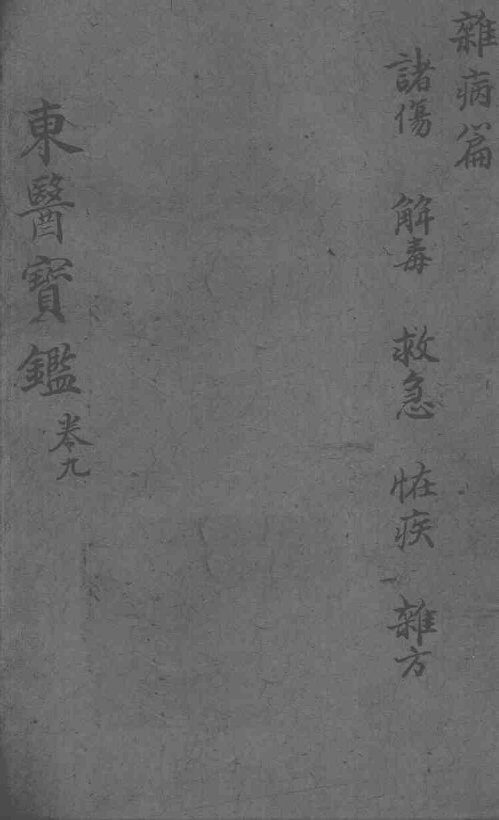 雜病篇
諸傷 解毒 救急 恠疾 雜方
東醫寶鑑 卷九